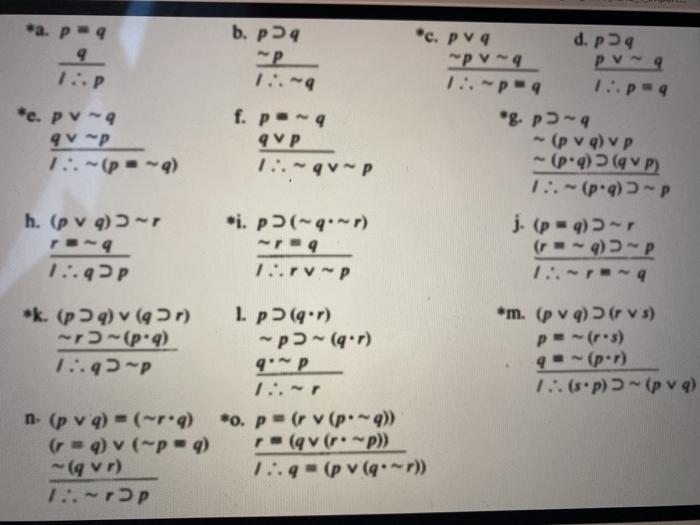 *a. p ≡ q
q
/∴ p
b. p ⊃ q
~p
/∴ ~q
*c. p ∨ q
~p ∨ ~q
/∴ ~p ≡ q
d. p ⊃ q
p ∨ ~q
/∴ p ≡ q
*e. p ∨ ~q
q ∨ ~p
/∴ ~(p ≡ ~q)
f. p ≡ ~q
q ∨ p
/∴ ~q ∨ ~p
*g. p ⊃ ~q
~(p ∨ q) ∨ p
~(p·q) ⊃ (q ∨ p)
/∴ ~(p·q) ⊃ ~p
h. (p ∨ q) ⊃ ~r
r ≡ ~q
/∴ q ⊃ p
*i. p ⊃ (~q·~r)
~r ≡ q
/∴ r ∨ ~p
j. (p ≡ q) ⊃ ~r
(r ≡ ~q) ⊃ ~p
/∴ ~r ≡ ~q
*k. (p ⊃ q) ∨ (q ⊃ r)
~r ⊃ ~(p·q)
/∴ q ⊃ ~p
l. p ⊃ (q·r)
~p ⊃ ~(q·r)
q·~p
/∴ ~r
*m. (p ∨ q) ⊃ (r ∨ s)
p ≡ ~(r·s)
q ≡ ~(p·r)
/∴ (s·p) ⊃ ~(p ∨ q)
n. (p ∨ q) ≡ (~r·q)
(r ≡ q) ∨ (~p ≡ q)
~(q ∨ r)
/∴ ~r ⊃ p
*o. p ≡ (r ∨ (p·~q))
r ≡ (q ∨ (r·~p))
/∴ q ≡ (p ∨ (q·~r))